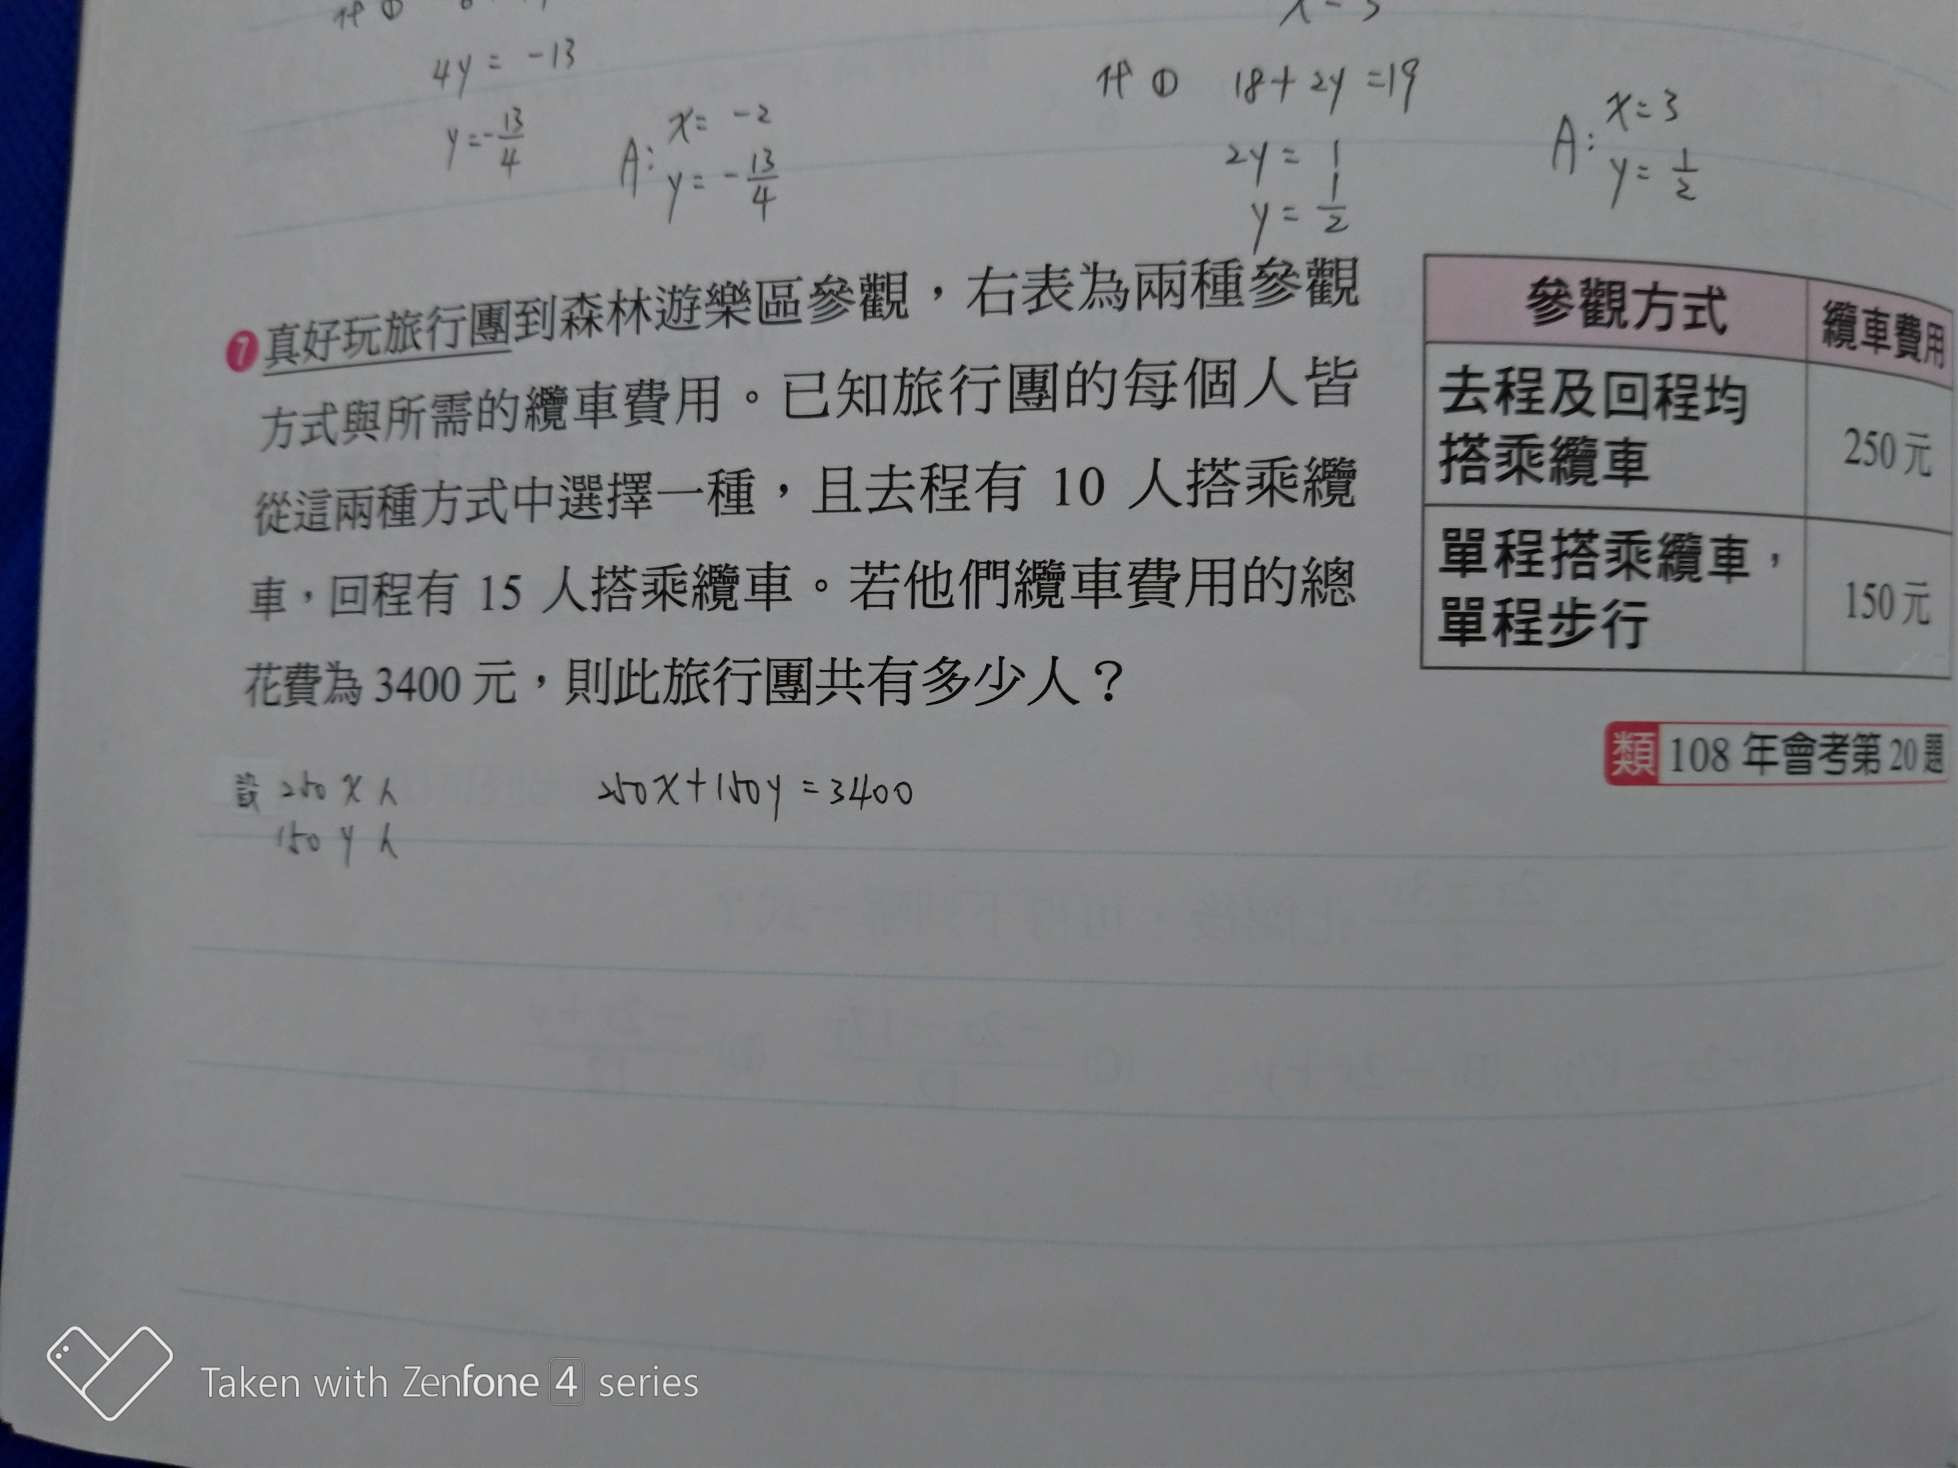 代①
4y = -13
y = -13/4
A: x = -2
y = -13/4
代① 18 + 2y = 19
2y = 1
y = 1/2
A: x = 3
y = 1/2
7 真好玩旅行團到森林遊樂區參觀,右表為兩種參觀
方式與所需的纜車費用。已知旅行團的每個人皆
從這兩種方式中選擇一種,且去程有 10 人搭乘纜
車,回程有 15 人搭乘纜車。若他們纜車費用的總
花費為 3400 元,則此旅行團共有多少人?
參觀方式 纜車費用
去程及回程均
搭乘纜車 250 元
單程搭乘纜車,
單程步行 150 元
類 108 年會考第 20 題
設 250 x 人
150 y 人
250x + 150y = 3400
Taken with Zenfone 4 series